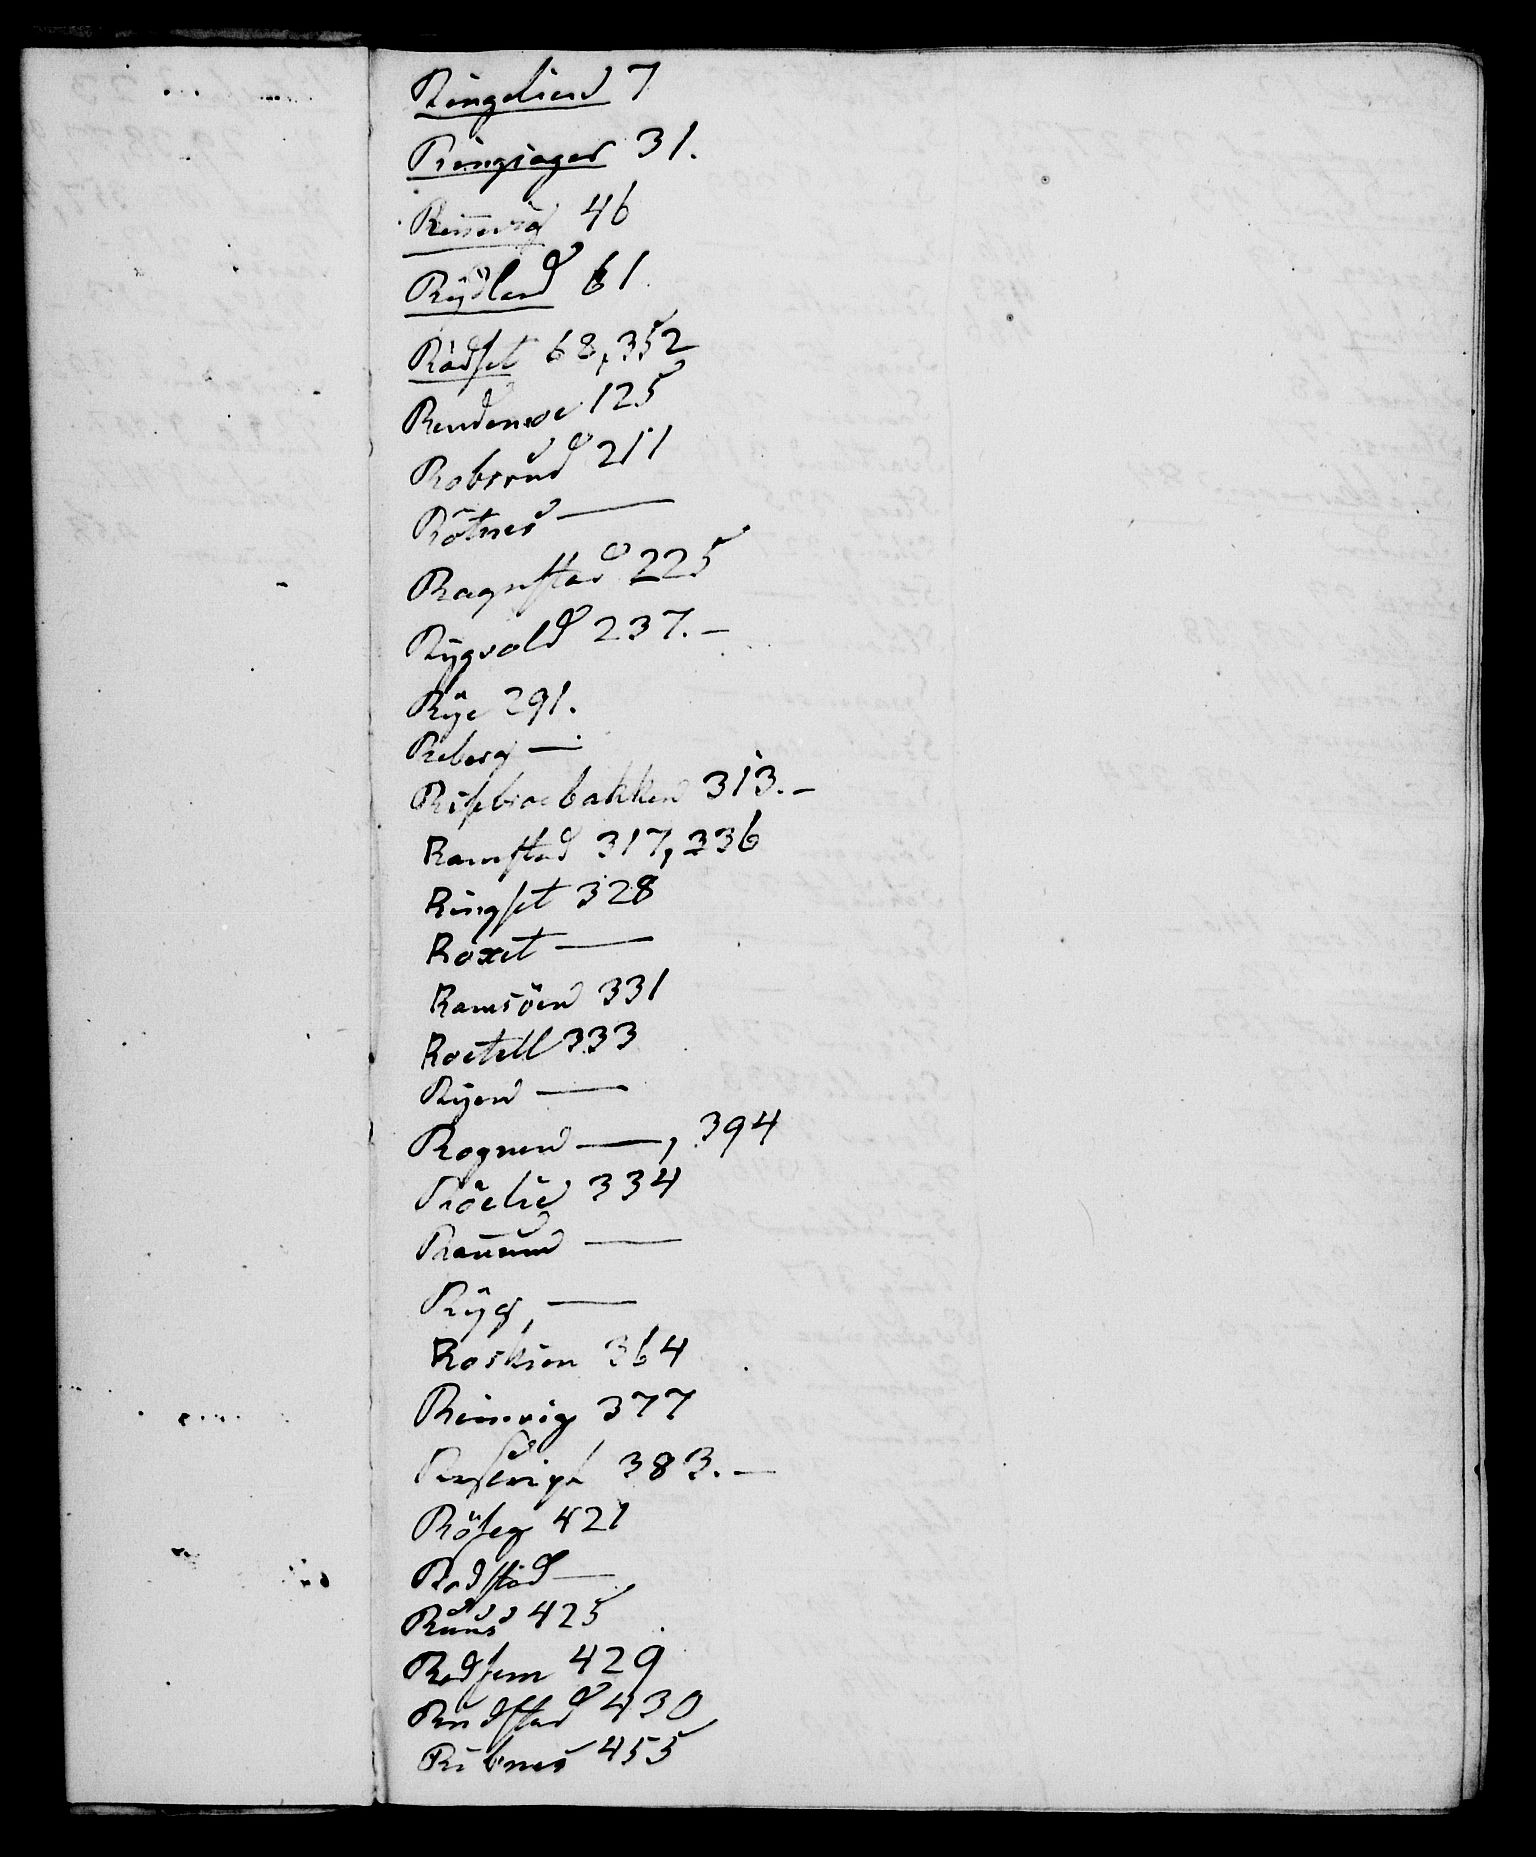 Ringelied 7
Ringsager 31.
Rinnvig 46
Rÿdland 61
Rådset 68, 352
Rendenæe 125
Robsrud 211
Rötnes —
Ragnstad 225
Rÿgvold 237. —
Rÿe 291.
Reberg —
Risebroebakken 313. —
Ramstad 317, 336
Ringset 328
Roxet —
Ramsöen 331
Roetell 333
Rÿen —
Rognen —, 394
Röelie 334
Rannum —
Rÿg, —
Roskien 364
Rimvig 377
383. —
Röseg 421
Rodstad —
Ruus 425
Rodsem 429
Rudstad 430
Ribnes 455